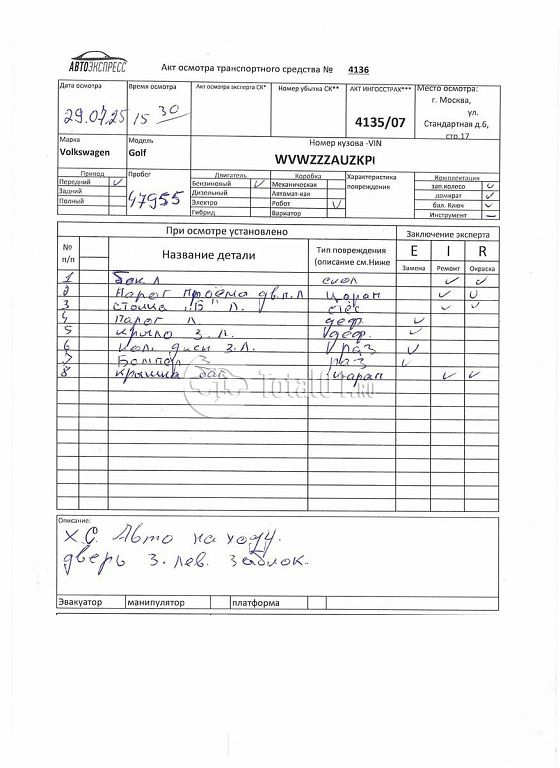 АВТОЭКСПРЕСС
Акт осмотра транспортного средства № 4136
Дата осмотра
29.07.25
Время осмотра
15 30
Акт осмотра эксперта СК*
Номер убытка СК**
АКТ ИНГОССТРАХ***
4135/07
Место осмотра:
г. Москва,
ул.
Стандартная д.6,
стр.17
Марка
Volkswagen
Модель
Golf
Номер кузова -VIN
WVWZZZAUZKP
Привод
Передний ✓
Задний
Полный
Пробег
47955
Двигатель
Бензиновый ✓
Дизельный
Электро
Гибрид
Коробка
Механическая
Автомат-кая
Робот ✓
Вариатор
Характеристика
повреждения
Комплектация
зап.колесо ✓
домкрат ✓
бал. Ключ ✓
Инструмент
При осмотре установлено
Заключение эксперта
№
п/п
Название детали
Тип повреждения
(описание см.Ниже
E I R
Замена Ремонт Окраска
1 Бок. Л ✓ ✓
2 проёма дв. п. Л Царап ✓ ✓
3 стойка "Б" Л. ✓ ✓
4 порог Л деф. ✓
5 крыло З. Л. деф. ✓
6 кол. диск З.Л. ✓
7 Бампер З ✓
8 крышка царап ✓ ✓
TotalO1.RU
Описание:
Х.С. Авто на ходу.
дверь З. лев. заблок.
Эвакуатор манипулятор платформа